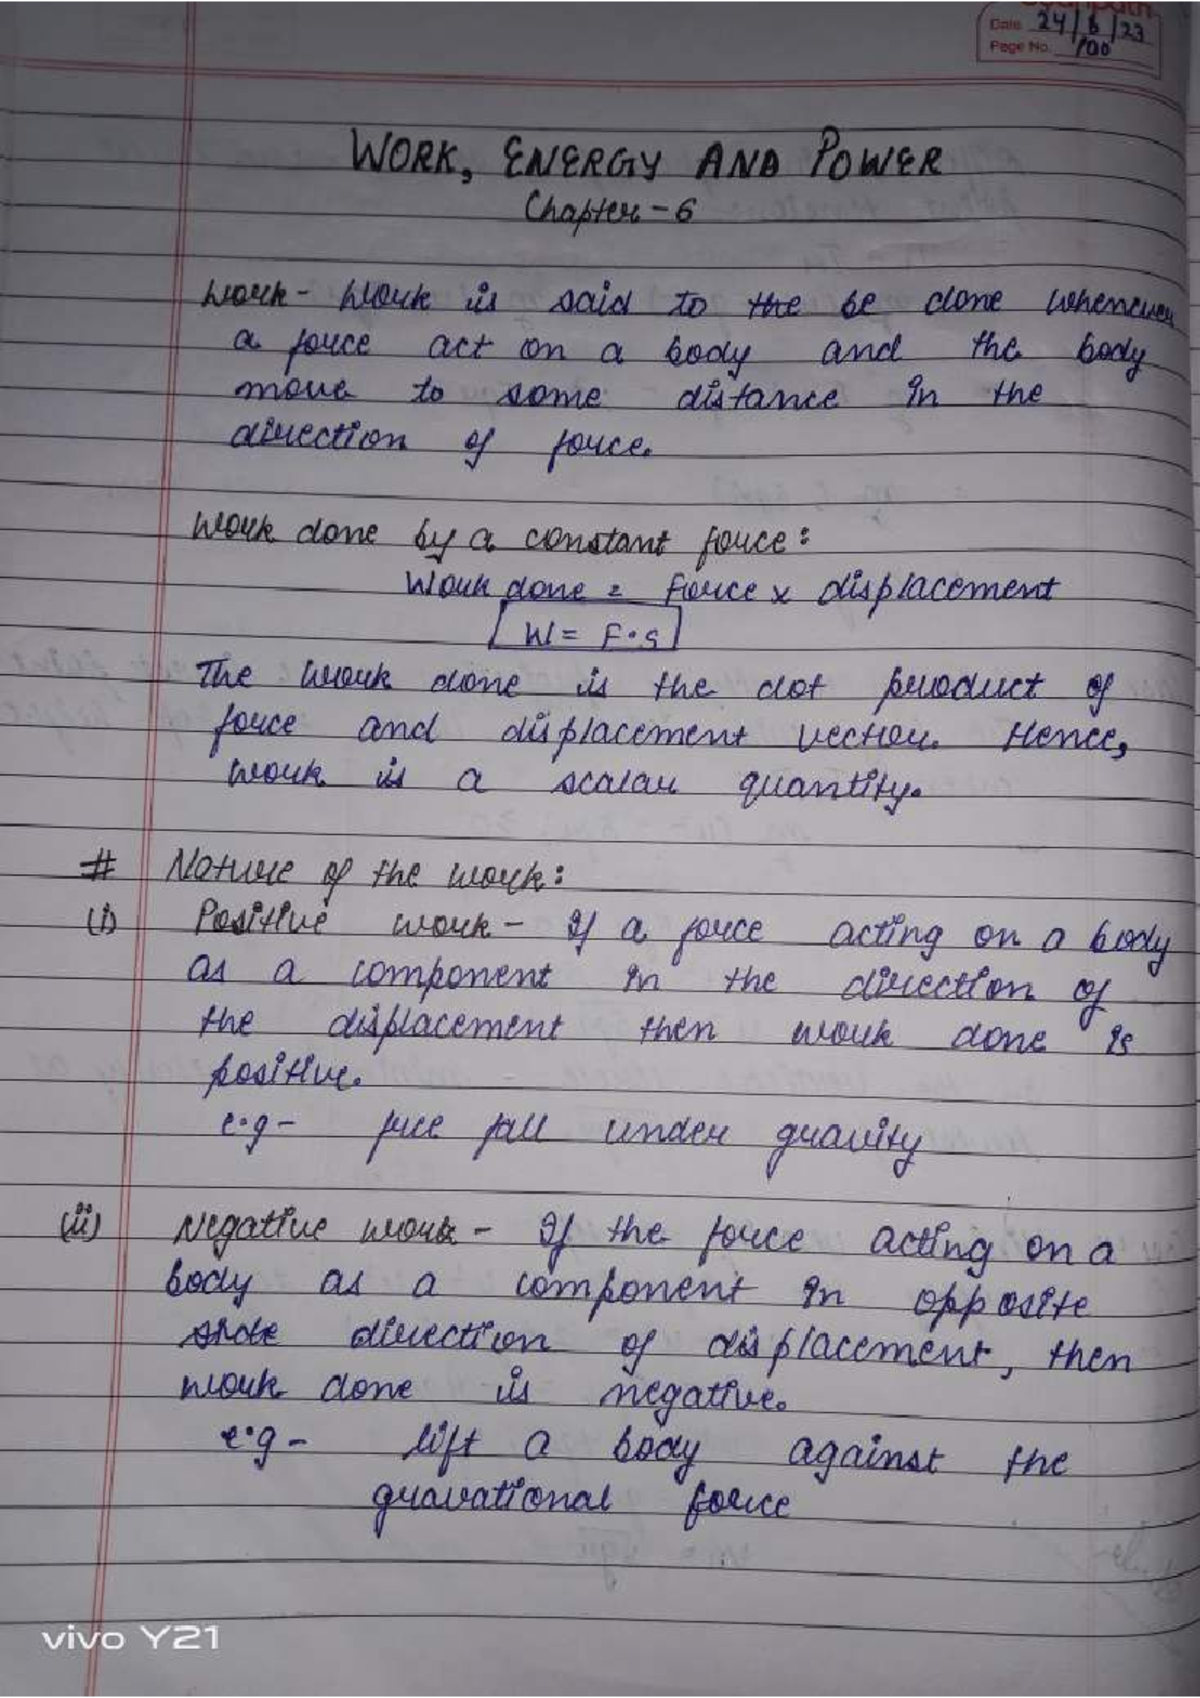 Date 24/6/23
Page No. 100
WORK, ENERGY AND POWER
Chapter - 6
Work - Work is said to the be done whenever
a force act on a body and the body
move to some distance in the
direction of force.
Work done by a constant force:
Work done = Force x displacement
W = F.s
The work done is the dot product of
force and displacement vector. Hence,
work is a scalar quantity.
# Nature of the work:
(i) Positive work - If a force acting on a body
as a component in the direction of
the displacement then work done is
positive.
e.g - free fall under gravity
(ii) Negative work - If the force acting on a
body as a component in opposite
side direction of displacement, then
work done is negative.
e.g - lift a body against the
gravational force
vivo Y21